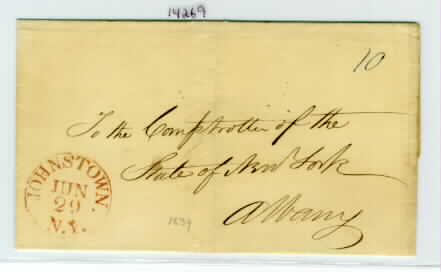 14269
10
To the Comptroller of the
State of New York
Albany
JOHNSTOWN
JUN
29
N.Y.
1839